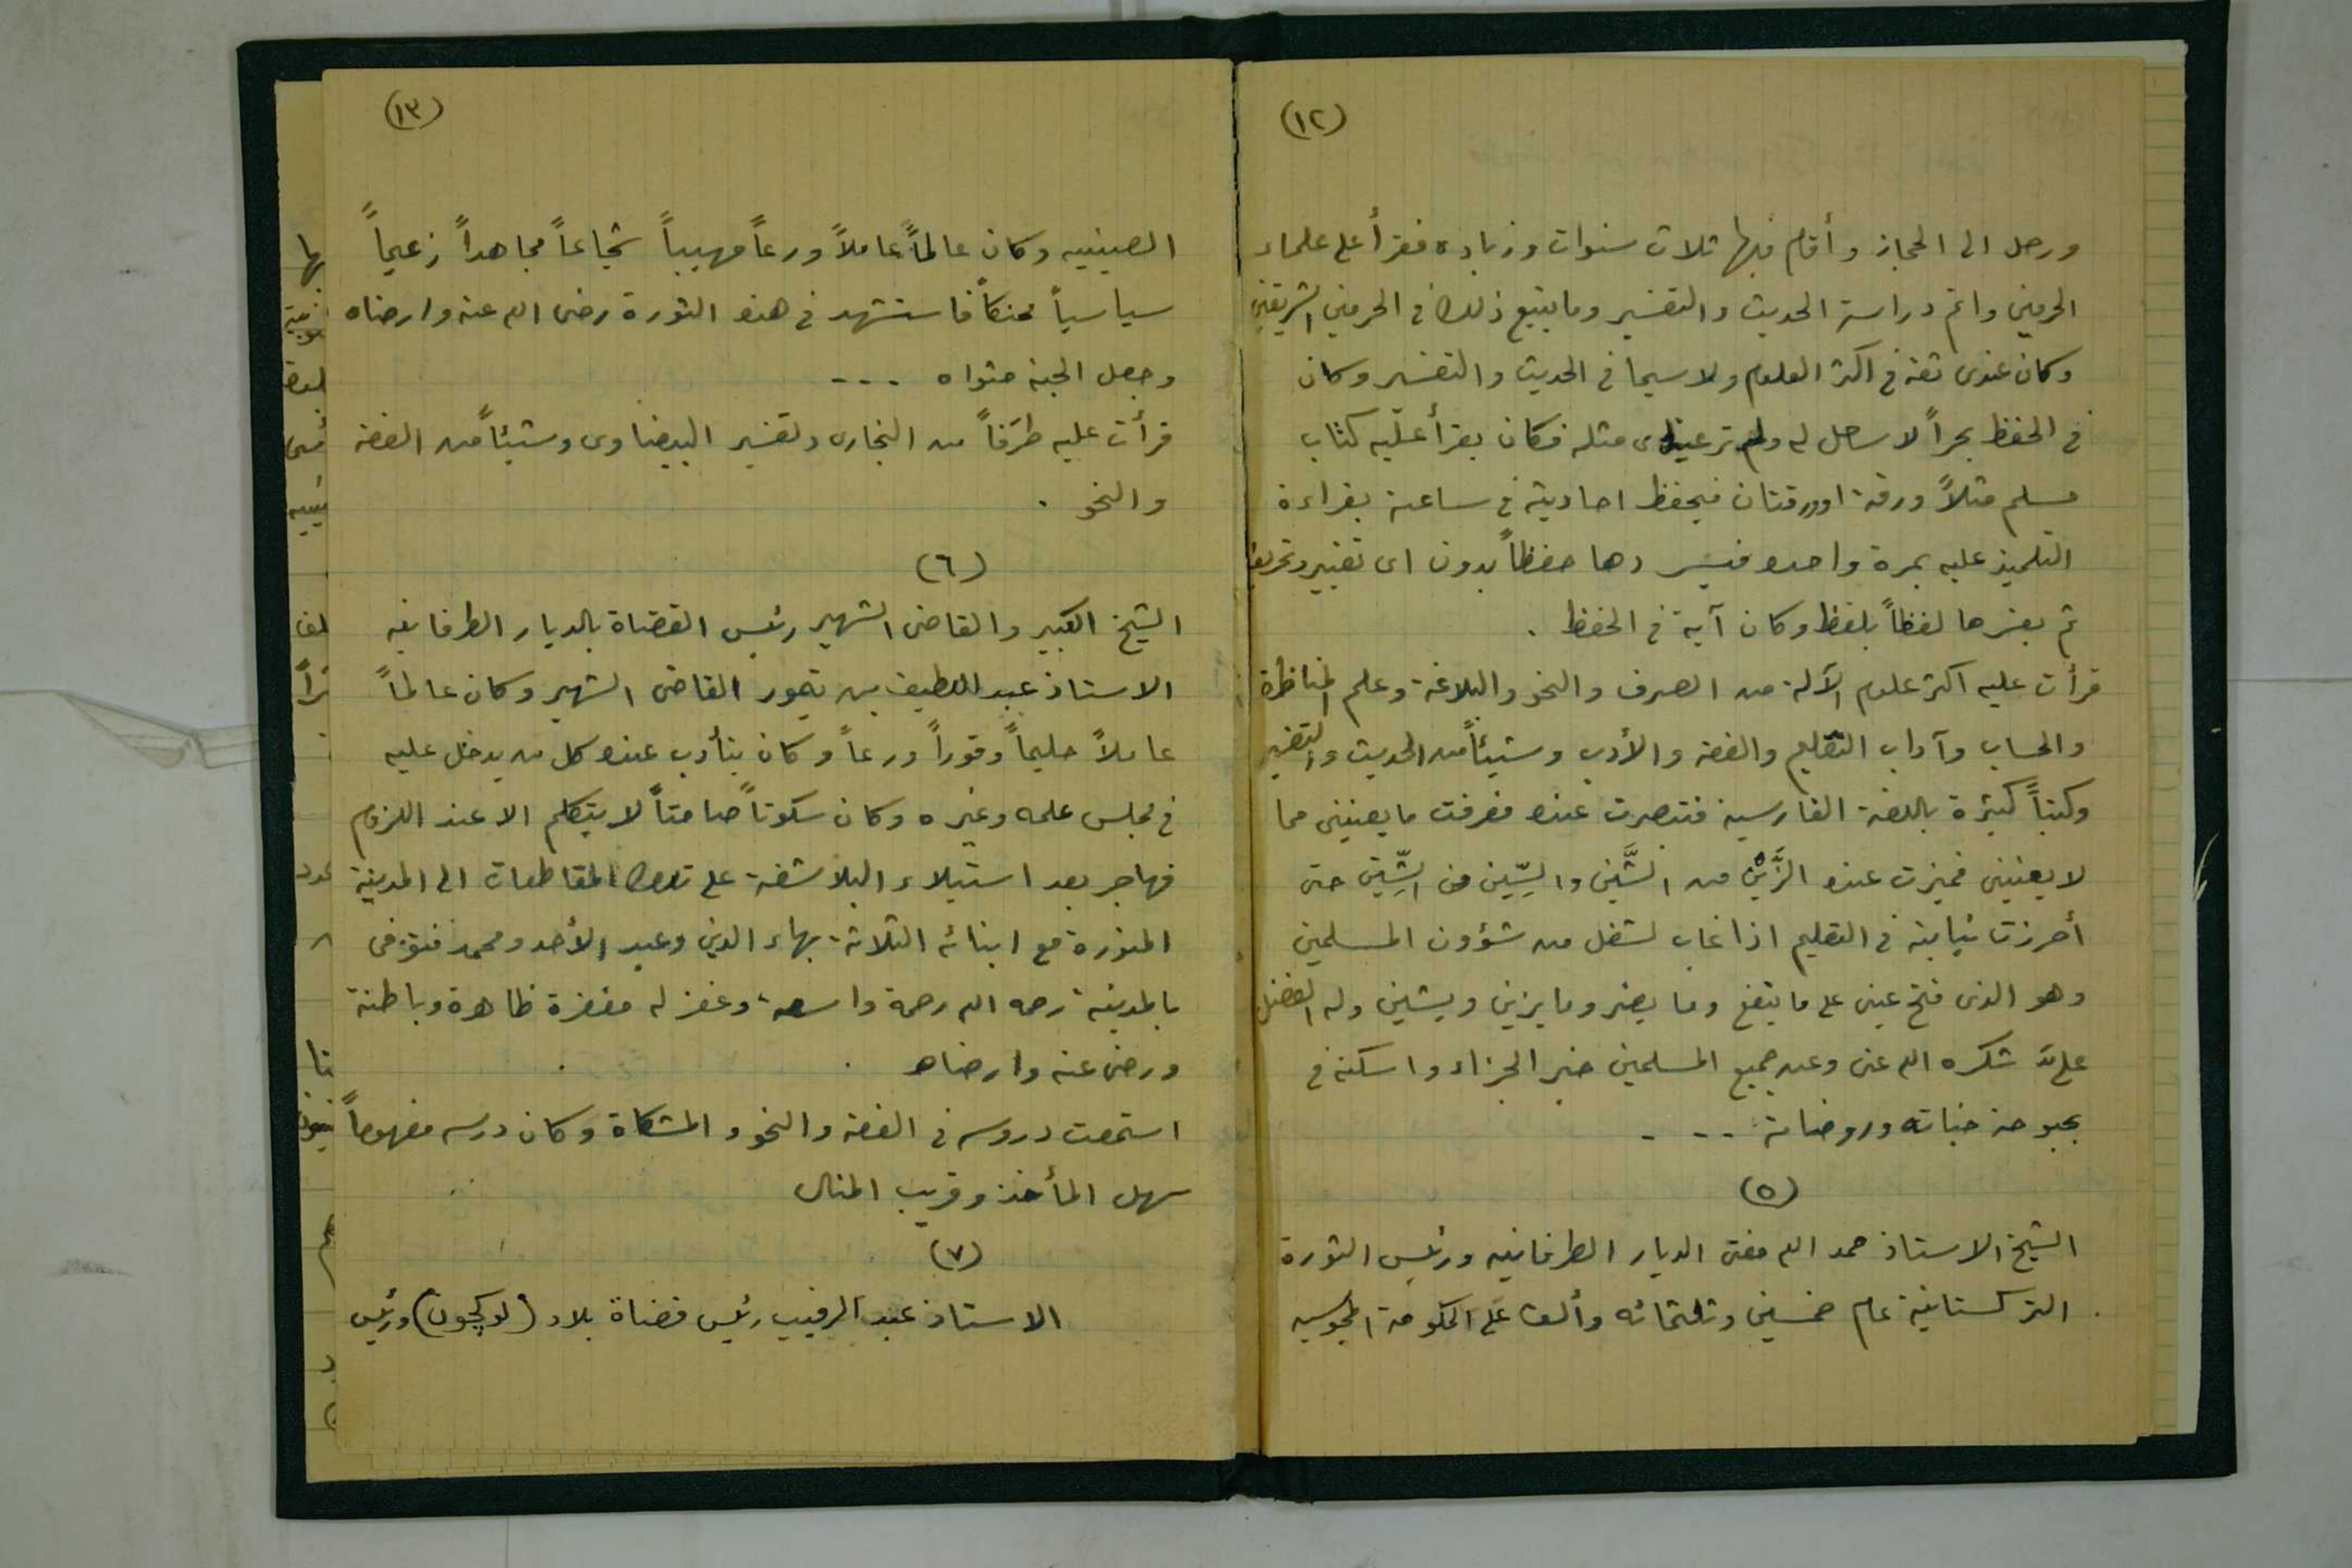 (١٢)
ورحل الى الحجاز وأقام فيها ثلاث سنوات وزيادة فقرأ على علماء
الحرمين واتم دراسة الحديث والتفسير وما يتبع ذلك في الحرمين الشريفين
وكان عندى ثقة في اكثر العلوم ولاسيما في الحديث والتفسير وكان
في الحفظ بحراً لا ساحل له ولم تر عيناى مثله فكان يقرأ عليه كتاب
مسلم مثلاً ورقة او ورقتان فيحفظ احاديثه في ساعة بقراءة
التلميذ عليه بمرة واحدة فيسردها حفظاً بدون اى تغيير وتحريف
ثم يفسرها لفظاً بلفظ وكان آية في الحفظ .
قرأت عليه اكثر علوم الآلة من الصرف والنحو والبلاغة وعلم المناظرة
والحساب وآداب التعليم والفقه والأدب وشيئاً من الحديث والتفسير
وكتباً كثيرة باللغة الفارسية فتبصرت عنده فعرفت ما يعنينى مما
لا يعنينى فميزت عنده الزَّيْن من الشَّين والسِّين من الشِّين حتى
أحرزت نيابته في التعليم اذا غاب لشغل من شؤون المسلمين
وهو الذى فتح عينى على ما ينفع وما يضر وما يزين ويشين وله الفضل
علىَّ شكره الله عنى وعن جميع المسلمين خير الجزاء واسكنه في
بحبوحة جناته وروضاته ...
(٥)
الشيخ الاستاذ حمد الله مفتى الديار الطرفانيه ورئيس الثورة
التركستانية عام خمسين وثلثمائه وألف على الحكومة المجوسيه
(١٣)
الصينيه وكان عالماً عاملاً ورعاً مهيباً شجاعاً مجاهداً زعيماً
سياسياً محنكاً فاستشهد في هذه الثورة رضى الله عنه وارضاه
وجعل الجنة مثواه ...
قرأت عليه طرَفاً من البخارى وتفسير البيضاوى وشيئاً من الفقه
والنحو .
(٦)
الشيخ الكبير والقاضى الشهير رئيس القضاة بالديار الطرفانيه
الاستاذ عبد اللطيف بن تيمور القاضى الشهير وكان عالماً
عاملاً حليماً وقوراً ورعاً وكان يتأدب عنده كل من يدخل عليه
في مجلس علمه وغيره وكان سكوتاً صامتاً لا يتكلم الا عند اللزوم
فهاجر بعد استيلاء البلاشفة على تلك المقاطعات الى المدينة
المنورة مع ابنائه الثلاثة بهاء الدين وعبد الأحد ومحمد فتوفى
بالمدينة رحمه الله رحمة واسعة وغفر له مغفرة ظاهرة وباطنة
ورضى عنه وارضاه .
استمعت دروسه في الفقه والنحو والمشكاة وكان درسه مفهوماً
سهل المأخذ وقريب المنال
(٧)
الاستاذ عبد الرقيب رئيس قضاة بلاد (لوكجون) ورئيس